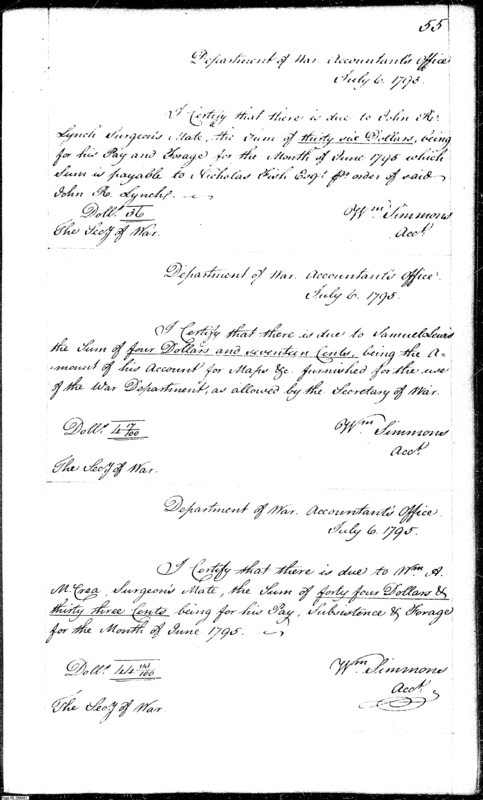 55
Department of War. Accountant's Office
July 6. 1795.
I Certify that there is due to John R.
Lynch Surgeon's Mate, the Sum of thirty six Dollars, being
for his Pay and Forage for the Month of June 1795 which
Sum is payable to Nicholas Fish Esqr. pr. order of said
John R. Lynch.
Dolls. 36
Wm. Simmons
Acct.
The Secy. of War.
Department of War. Accountant's Office.
July 6. 1795.
I Certify that there is due to Samuel Lewis
the Sum of four Dollars and seventeen Cents, being the A-
mount of his Account for Maps &c. furnished for the use
of the War Department, as allowed by the Secretary of War.
Dolls. 4
Wm. Simmons
Acct.
The Secy. of War.
Department of War. Accountant's Office.
July 6. 1795.
I Certify that there is due to Wm. A.
McCrea, Surgeon's Mate, the Sum of forty four Dollars &
thirty three Cents being for his Pay, Subsistence & Forage
for the Month of June 1795.
Dolls. 44 33/100
Wm. Simmons
Acct.
The Secy. of War